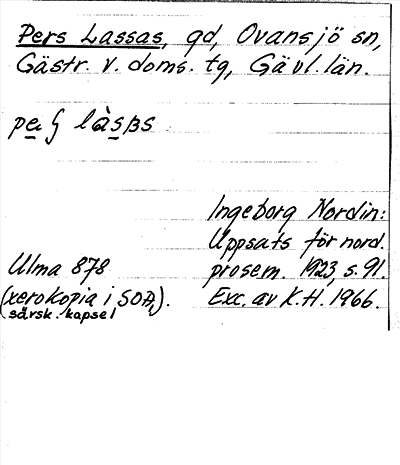 Pers Lassas, gd, Ovansjö sn,
Gästr. v. doms. tg, Gävl. län.
Ingeborg Nordin:
Uppsats för nord.
Ulma 878
prosem. 1923, s. 91.
(xerokopia i SOA,
särsk. kapsel).
Exc. av K.H. 1966.